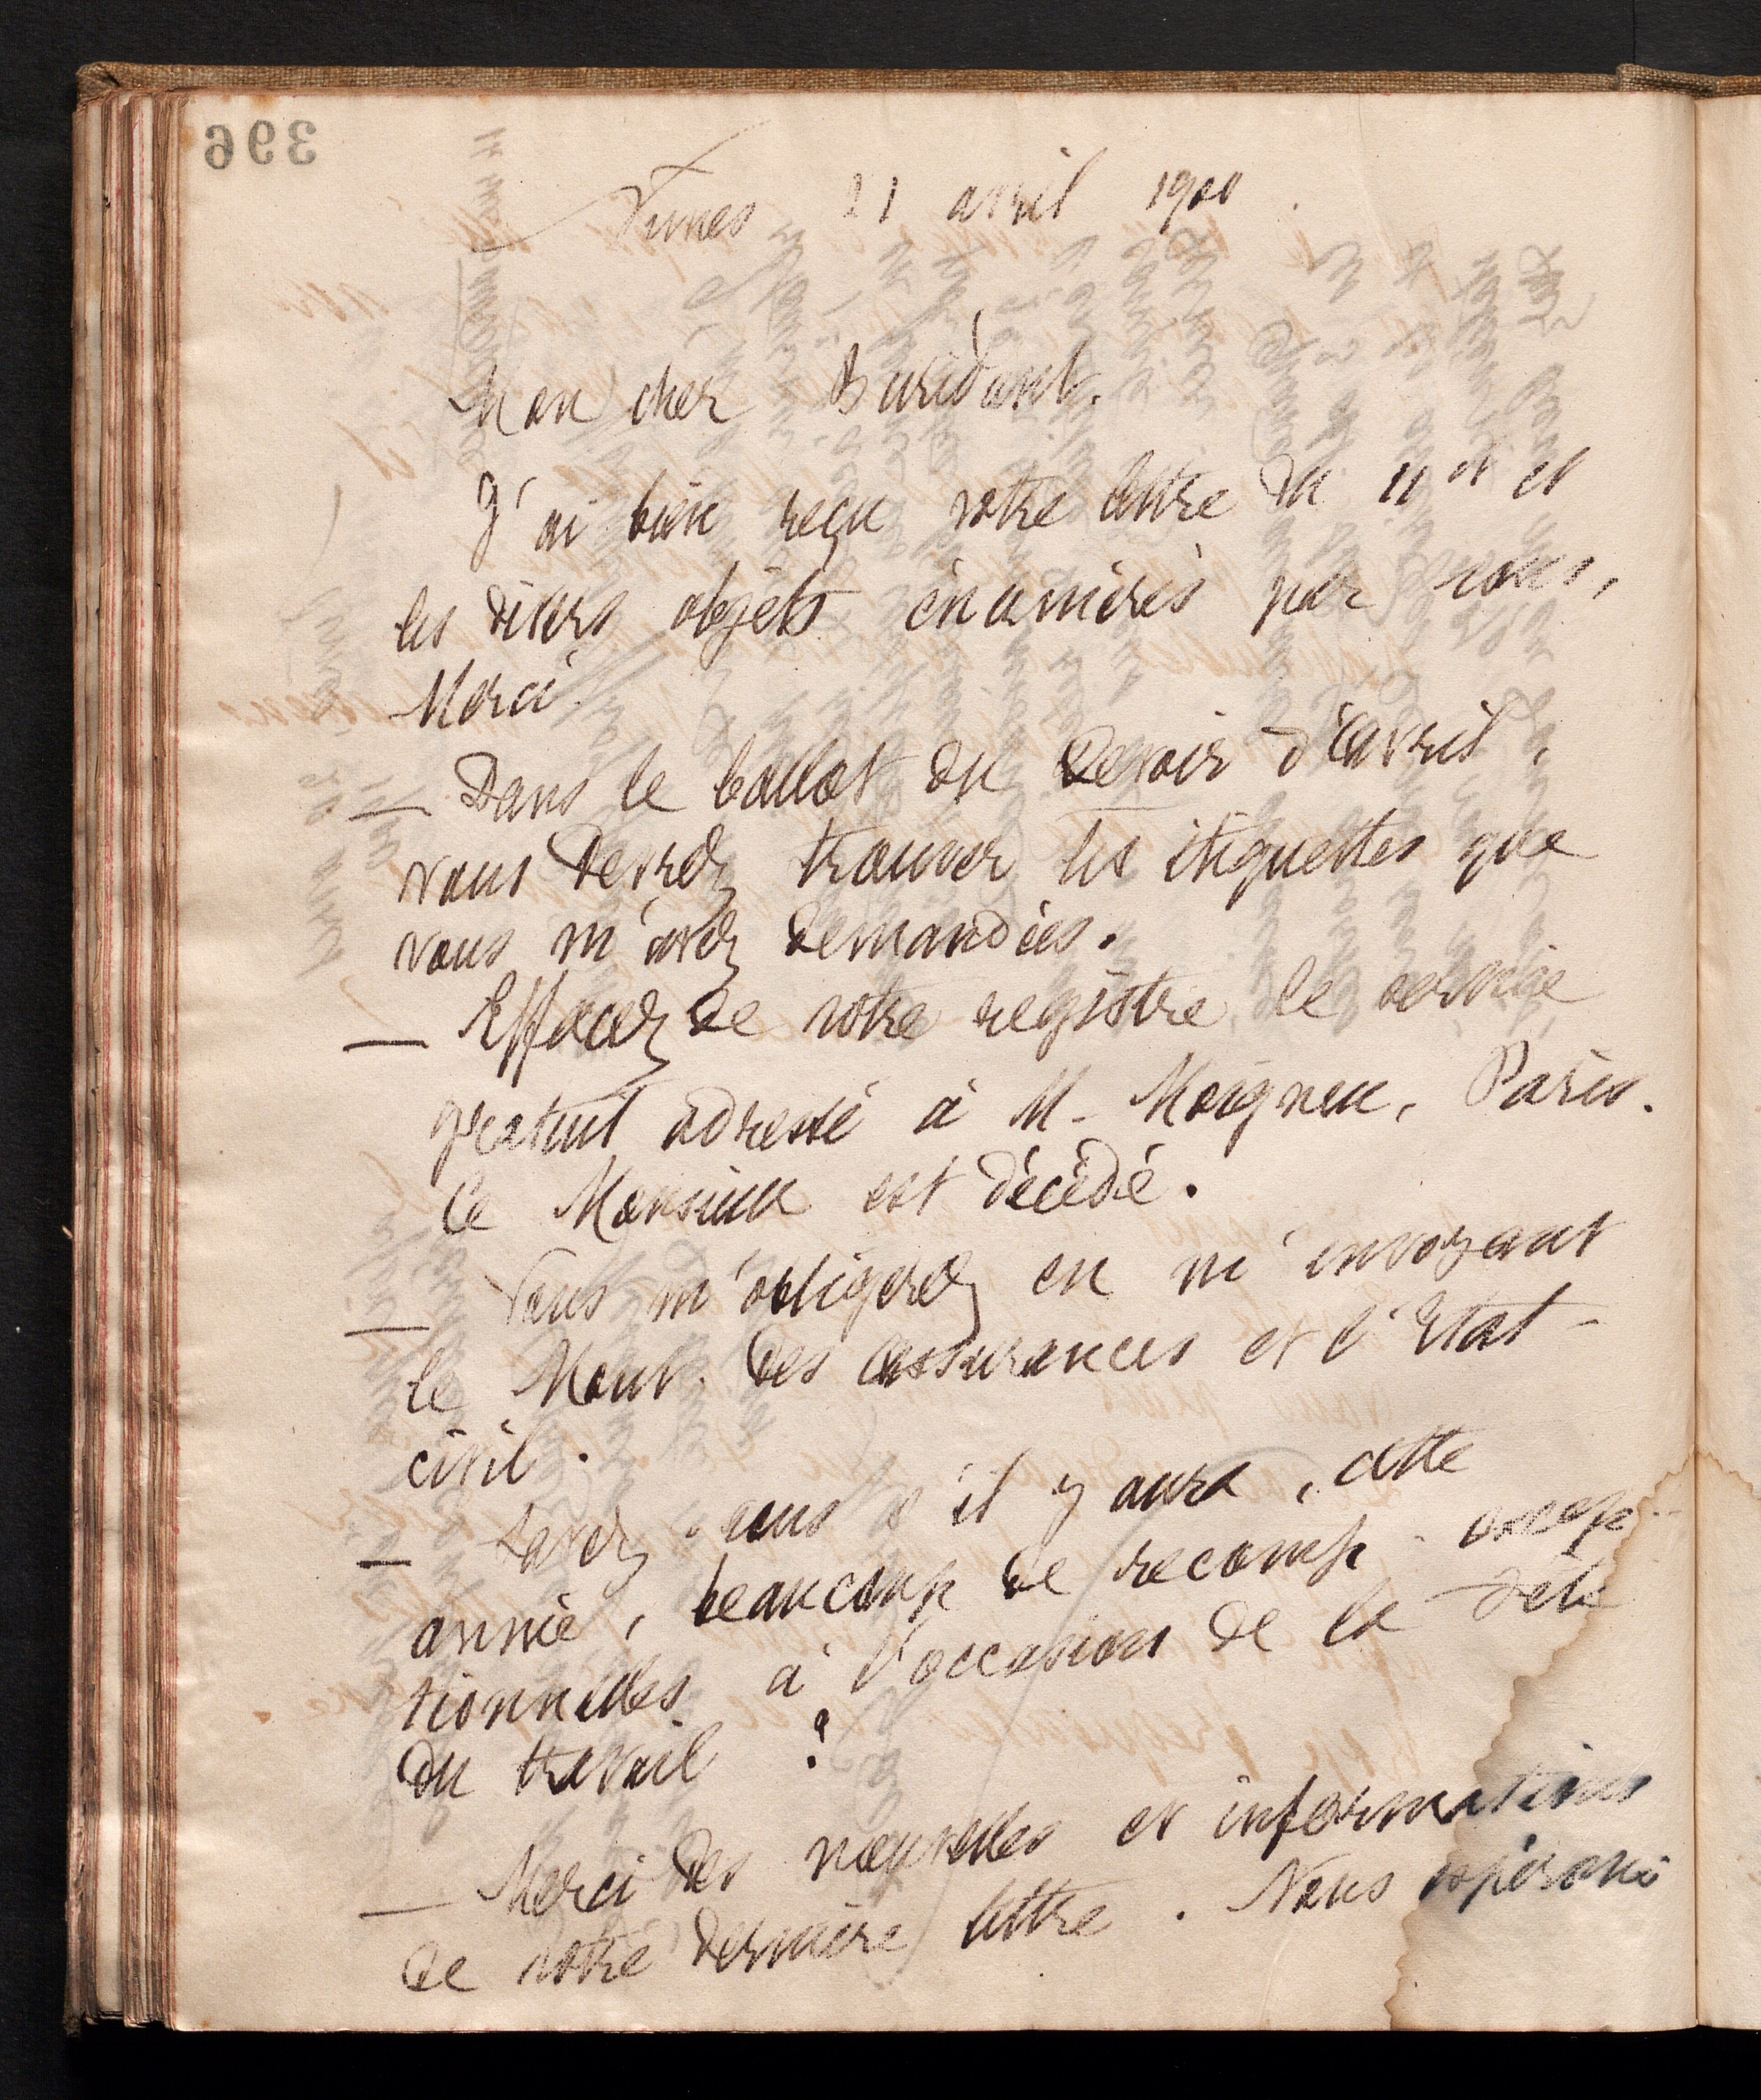 396
Nimes 21 avril 1900.
Mon cher Buridant.
J'ai bien reçu votre lettre du 11 ct et
les divers objets énumérés par vous,
Merci.
— Dans le ballot du Devoir d'avril,
vous devrez trouver les étiquettes que
vous m'avez demandées.
— Effacez de votre registre le service
gratuit adressé à M. Moigneu, Paris.
Ce Monsieur est décédé.
— Vous m'obligerez en m'envoyant
le Mont. des assurances et l'Etat-
civil.
— Savez-vous s'il y aura, cette
année, beaucoup de récomp. excep-
tionnelles à l'occasion de la fête
du travail ?
— Merci des nouvelles et informations
de votre dernière lettre. Nous espérons